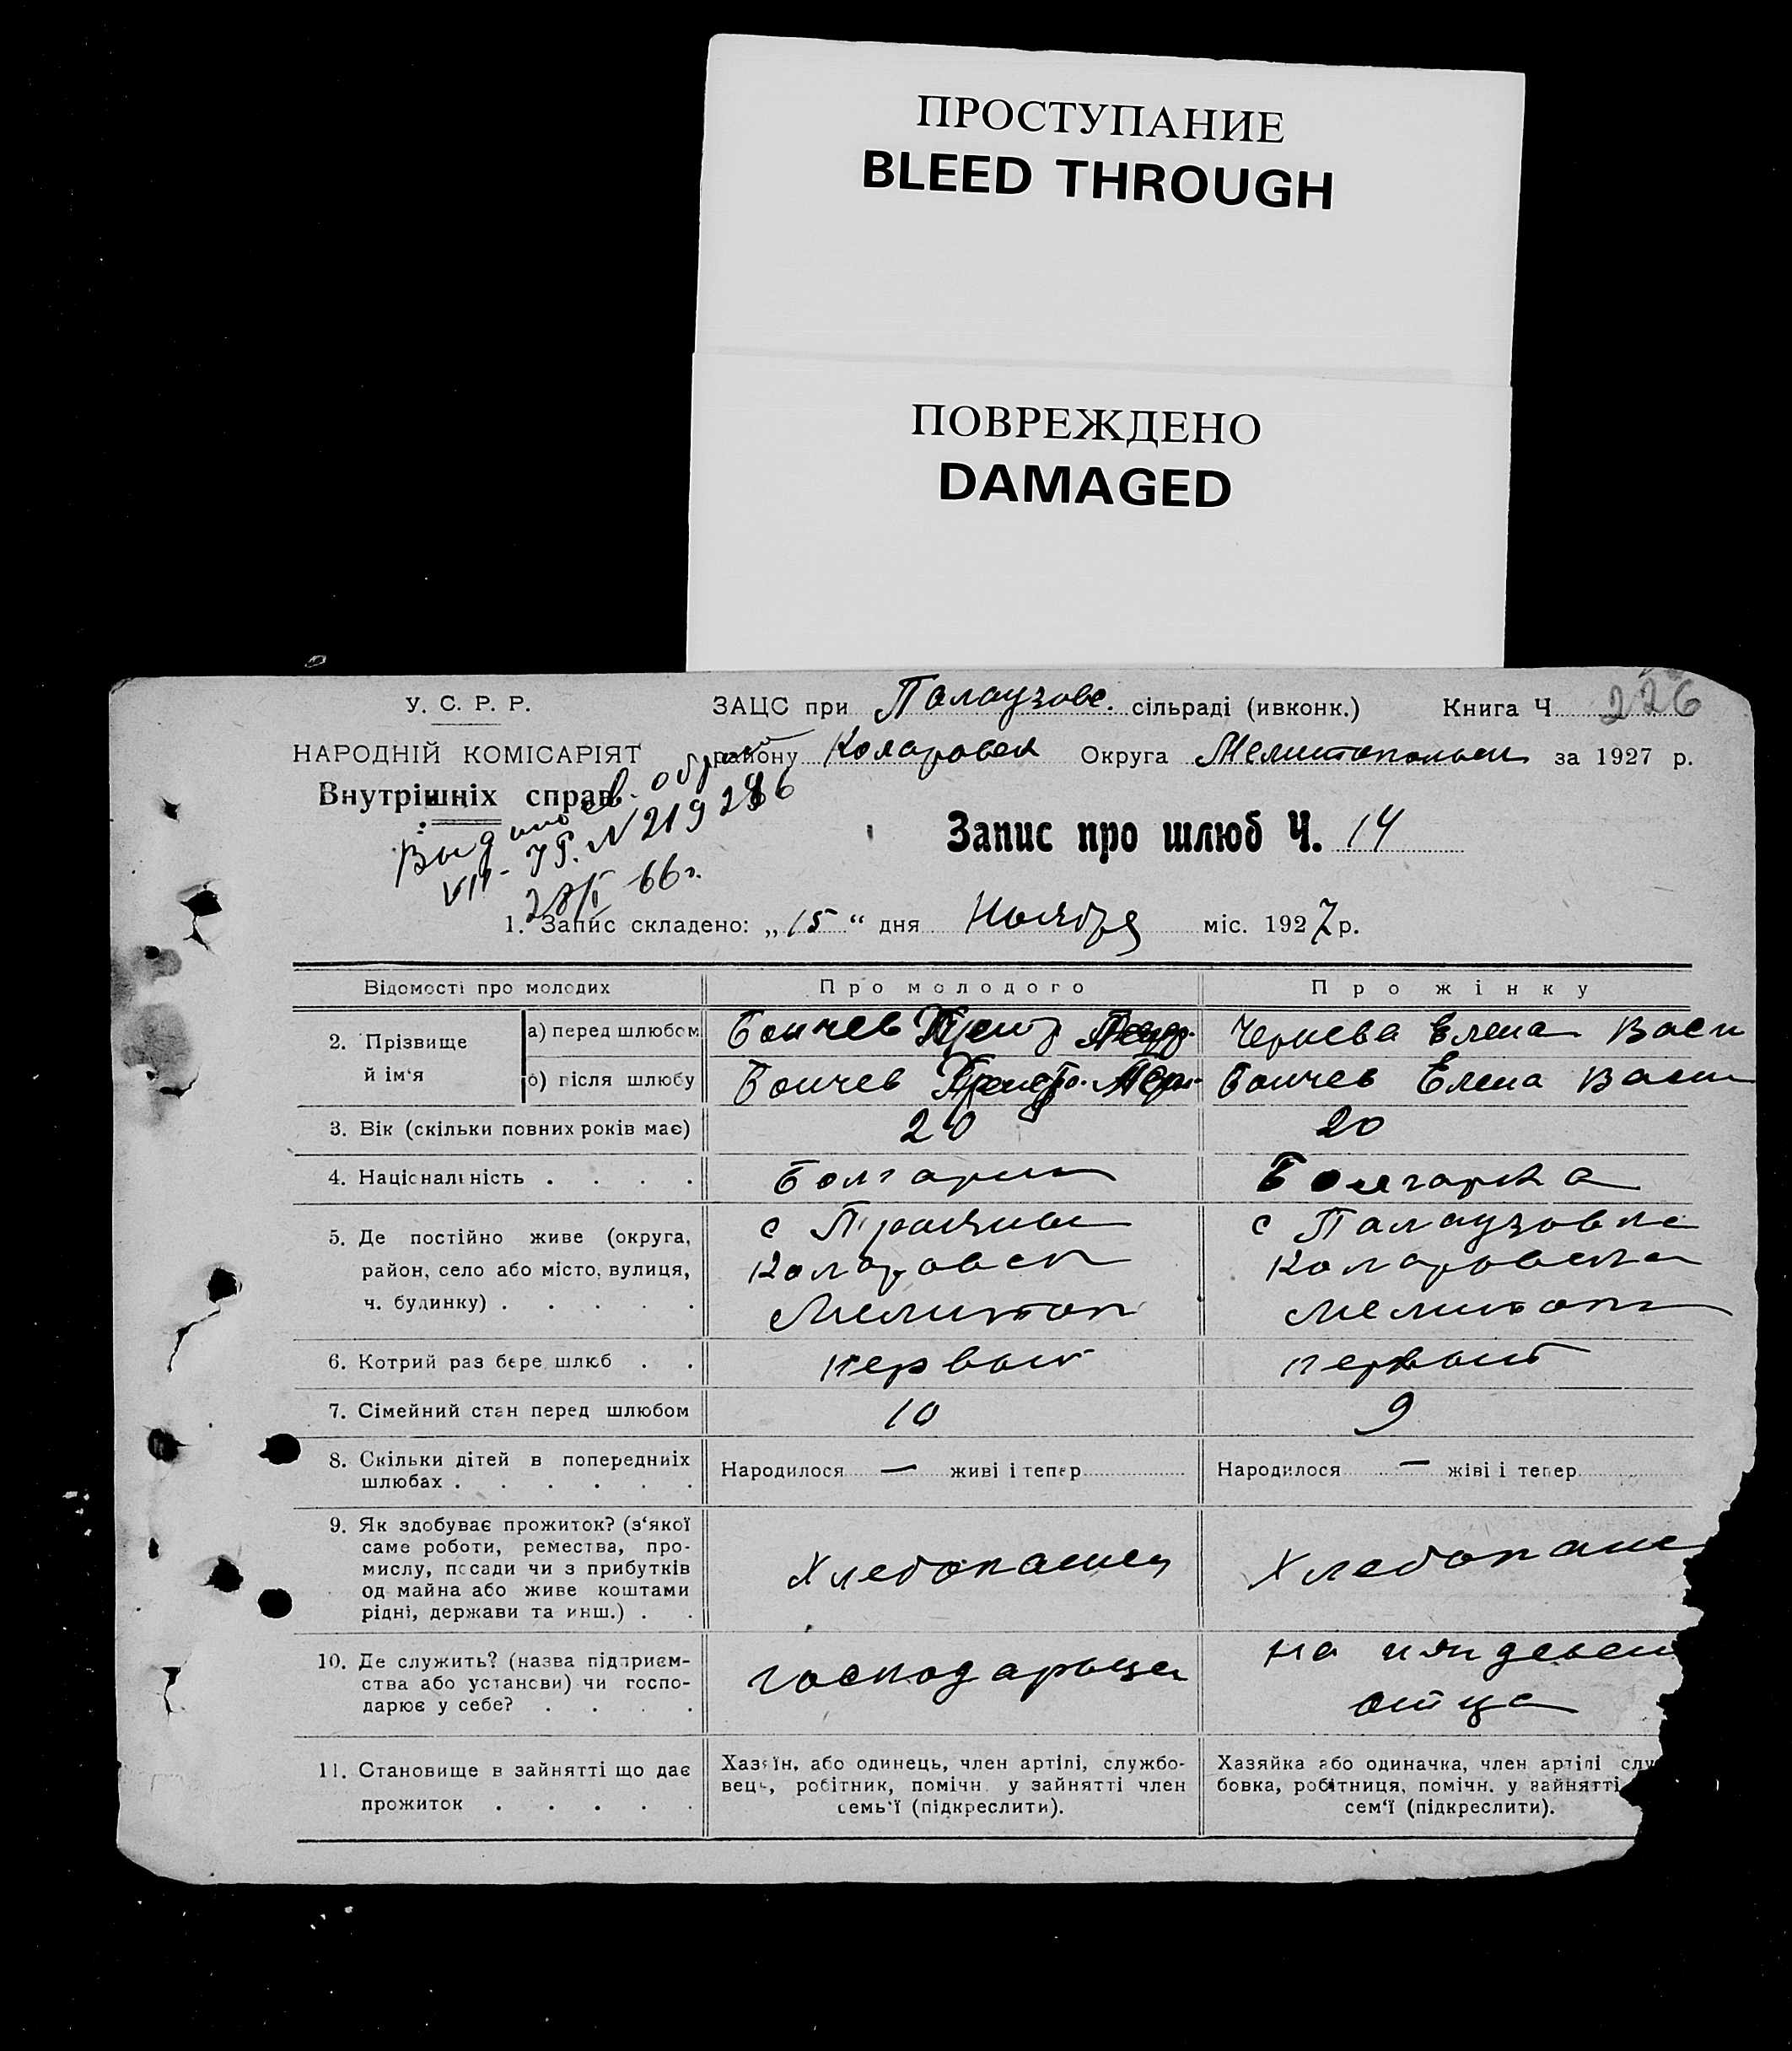 ПРОСТУПАНИЕ
BLEED THROUGH
ПОВРЕЖДЕНО
DAMAGED
У. С. Р. Р.
ЗАЦС при Палаузовс. сільраді (ивконк.) Книга Ч 226
НАРОДНІЙ КОМІСАРІЯТ
району Коларовск Округа Мелитопольск за 1927 р.
Внутрішніх справ
Выдано св. о браке
VII-ЯР. N 219286
28/V 66 г.
Запис про шлюб Ч. 14
1. Запис складено: „15“ дня Ноября міс. 1927 р.
Відомості про молодих
Про молодого
Про жінку
2. Прізвище й ім‘я
а) перед шлюбом
Боичев
Чернева Елена Васи
б) після шлюбу
Боичев
Боичев Елена Васи
3. Вік (скільки повних років має)
20
20
4. Національність . . . .
Болгарин
Болгарка
5. Де постійно живе (округа,
район, село або місто, вулиця,
ч. будинку) . . . . .
с
Коларовск
Мелитоп
с Палаузовка
Коларовска
Мелитоп
6. Котрий раз бере шлюб . .
первый
первый
7. Сімейний стан перед шлюбом
10
9
8. Скільки дітей в попередниіх
шлюбах . . . . . .
Народилося — живі і тепер
Народилося — жіві і тепер
9. Як здобуває прожиток? (з‘якої
саме роботи, ремества, про-
мислу, посади чи з прибутків
од майна або живе коштами
рідні, держави та инш.) . .
Хлебопашец
Хлебопаше
10. Де служить? (назва підприєм-
ства або установи) чи госпо-
дарює у себе? . . . .
господарыца
на иждевен
отца
11. Становище в зайнятті що дає
прожиток . . . . .
Хазяїн, або одинець, член артілі, службо-
вець, робітник, помічн. у зайнятті член
семь‘ї (підкреслити).
Хазяйка або одиначка, член артілі слу
бовка, робітниця, помічн. у зайнятті
сем‘ї (підкреслити).